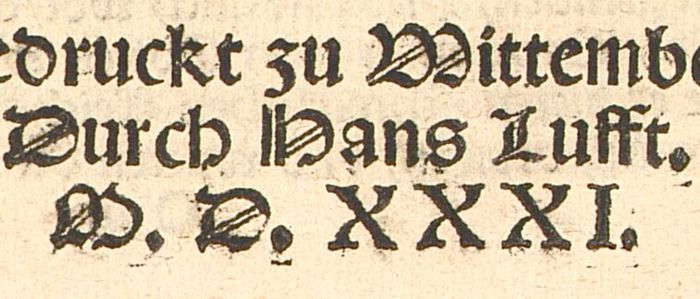 edruckt zu Wittembe
Durch Hans Lufft.
M. D. XXXI.